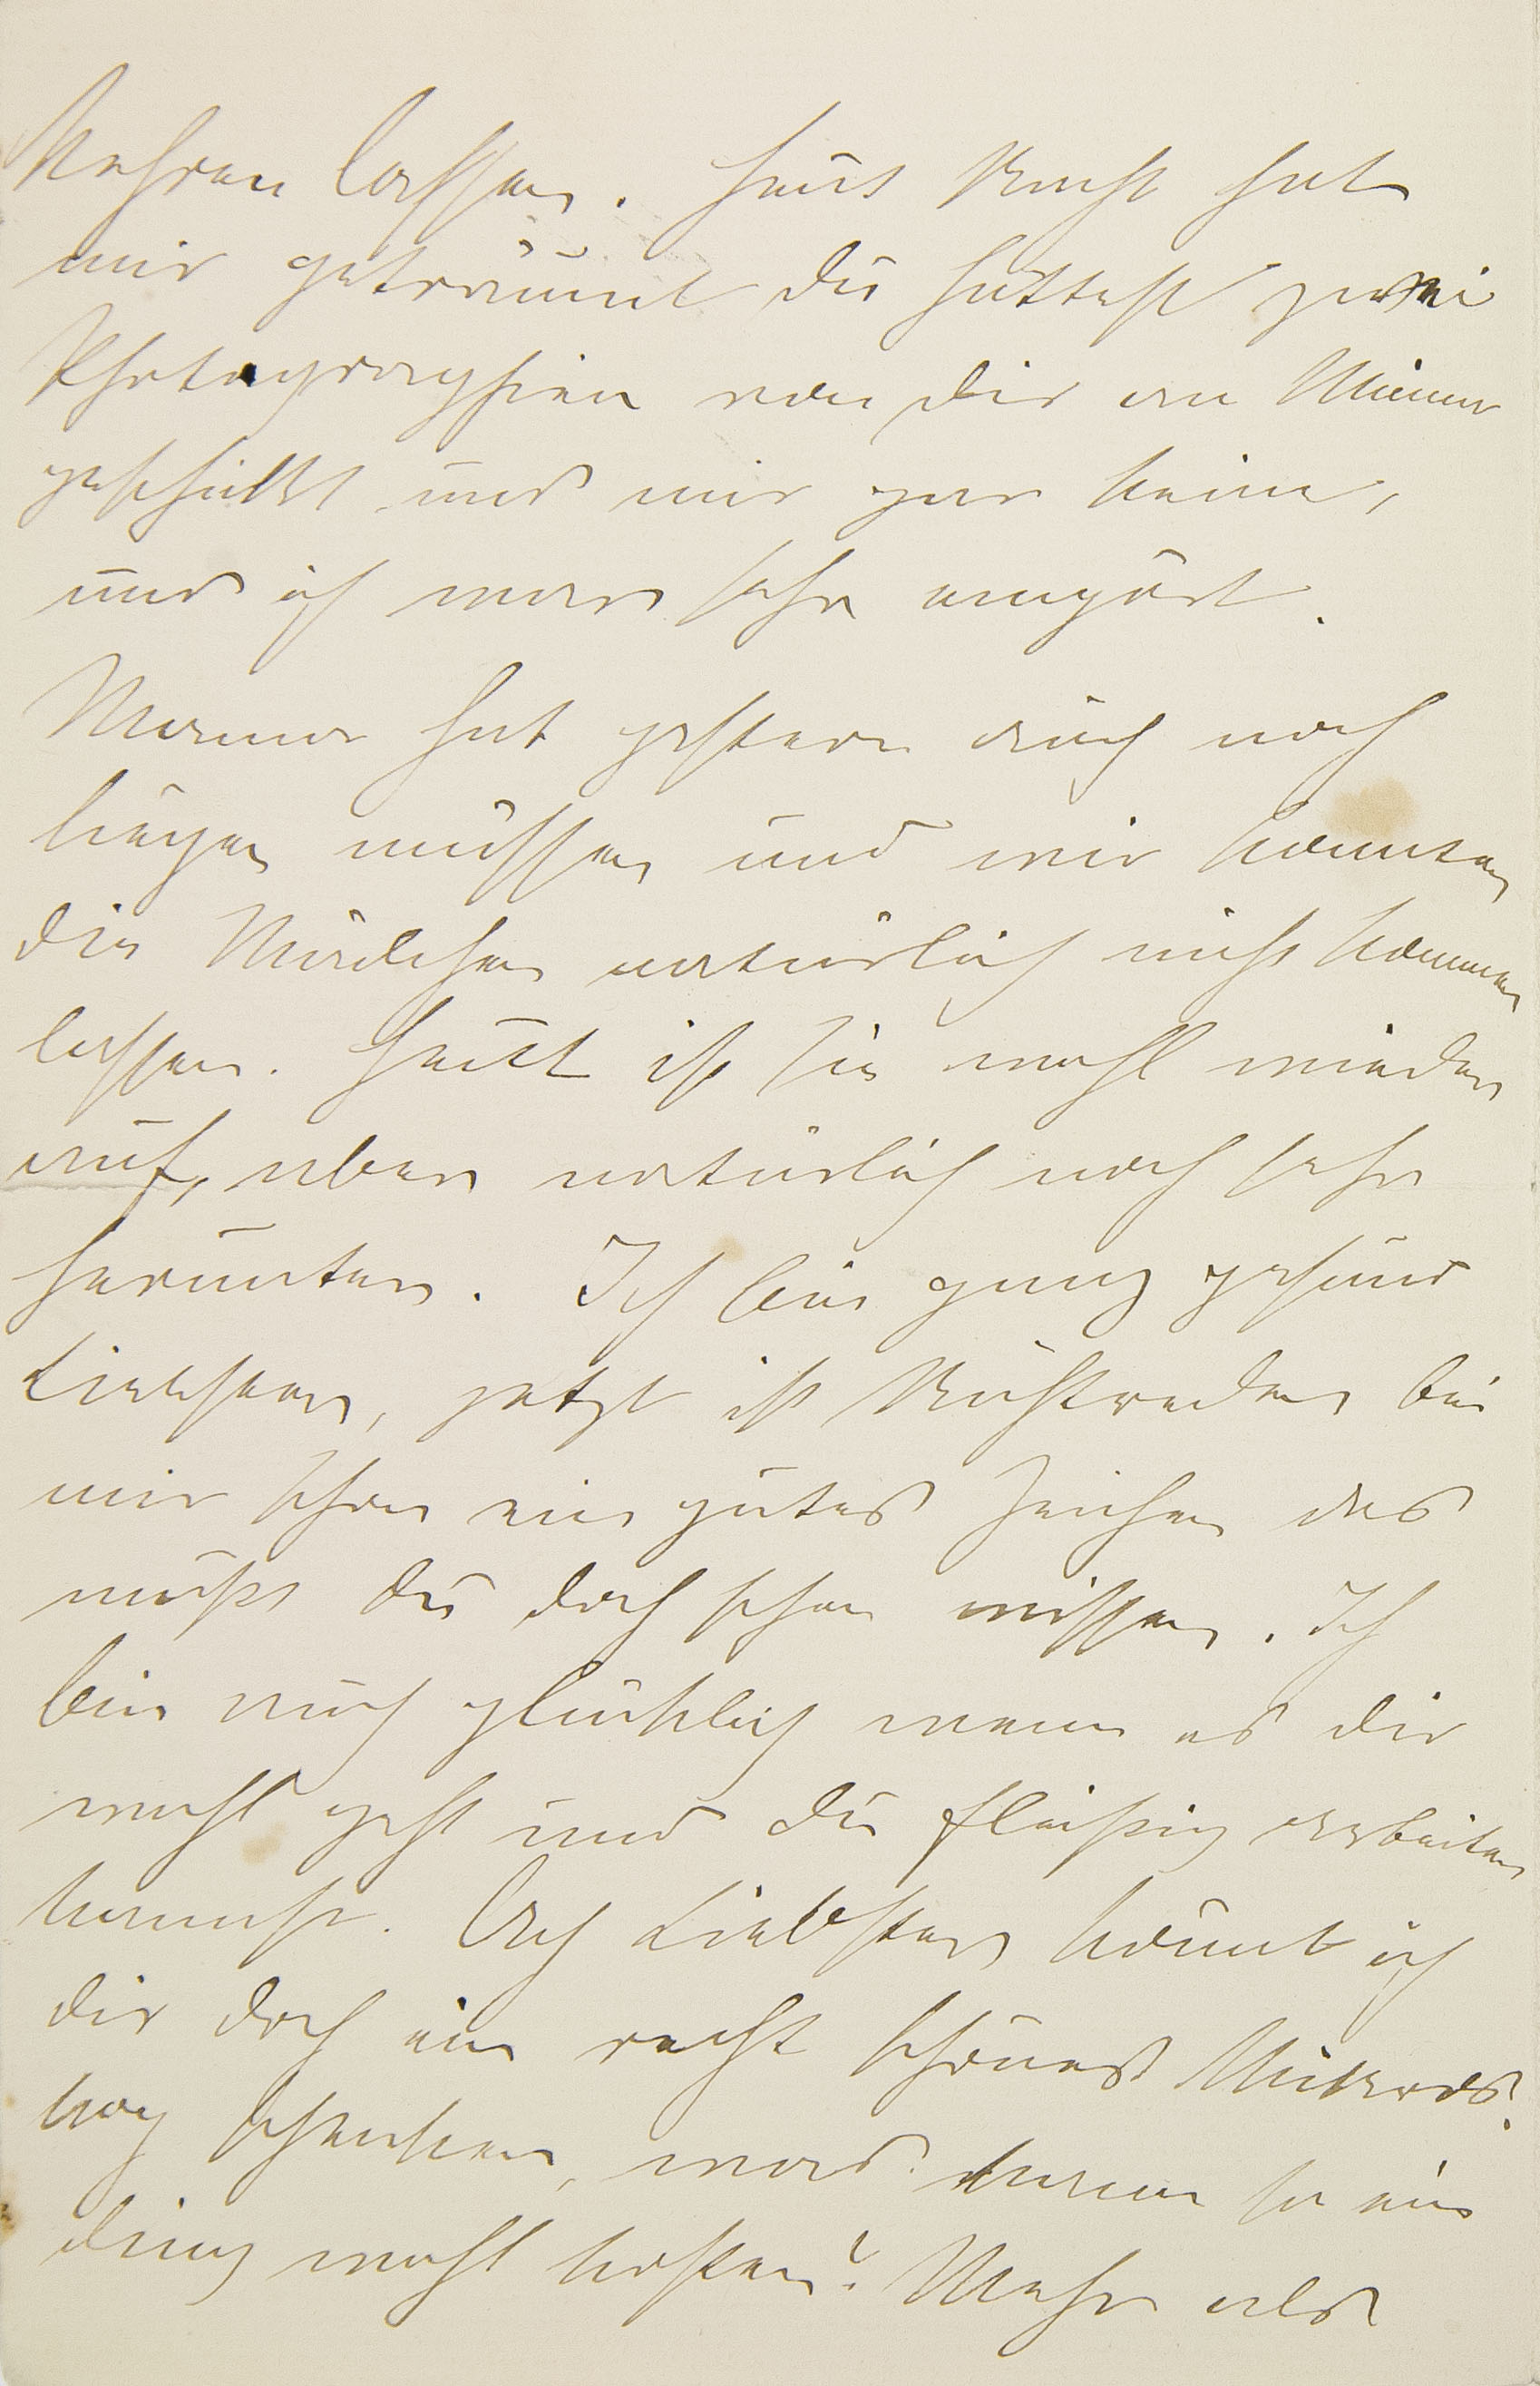 lassen. Heut Nacht hat
mir geträumt du hättest zwei
Photographien von dir an Minna
geschickt und mir gar keine,
und ich war sehr empört.
Mama hat gestern auch noch
liegen müssen und wir konnten
die Mädchen natürlich nicht kommen
lassen. Heut ist sie wohl wieder
auf, aber natürlich noch sehr
herunter. Ich bin ganz gesund
Liebster, jetzt ist bei
mir schon ein gutes Zeichen das
mußt du doch schon wissen. Ich
bin auch glücklich wenn es dir
wohl geht und du fleißig arbeiten
kannst. Ach Liebster könnt ich
dir doch ein recht schönes Mikros-
kop schenken, was kann so ein
ding wohl kosten? Mehr als